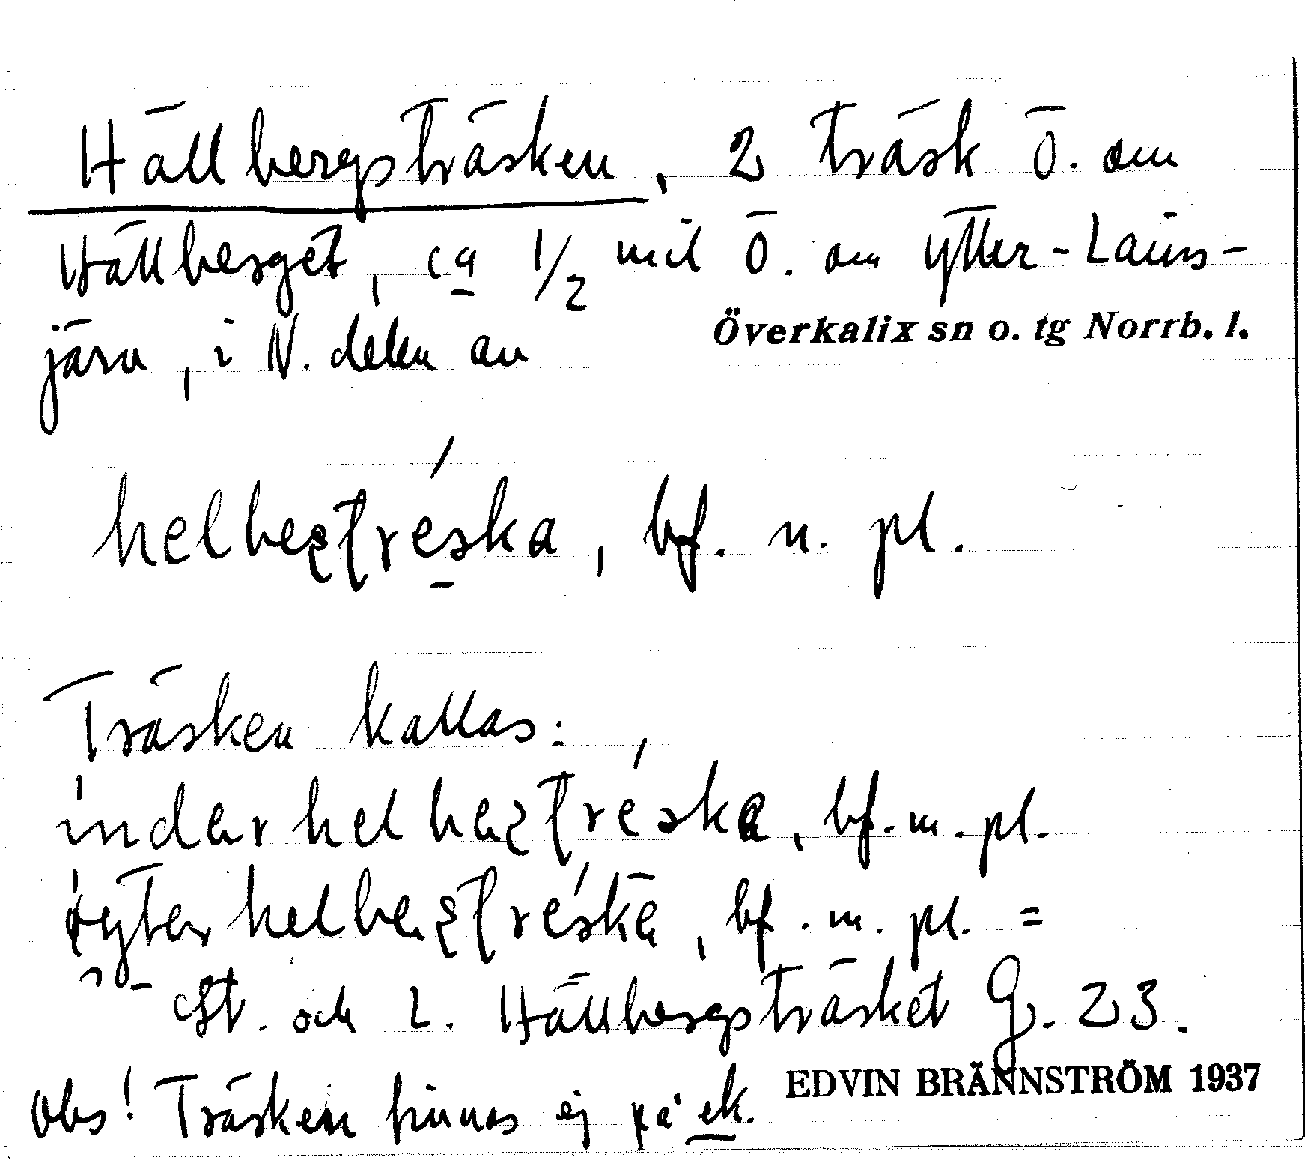 Hällbergsträsken, 2 träsk Ö. om
Hällberget, ca 1/2 mil Ö. om Ytter-Lains-
järv, i N. delen av
Överkalix sn o. tg Norrb. l.
helbeʂʈréska, bf. n. pl.
Träsken kallas:
indarhelbeʂʈréska, bf. n. pl.
helbeʂʈréska, bf. n. pl. =
St. och L. Hällbergsträsket G. 23.
Obs! Träsken finnas ej på ek.
EDVIN BRÄNNSTRÖM 1937